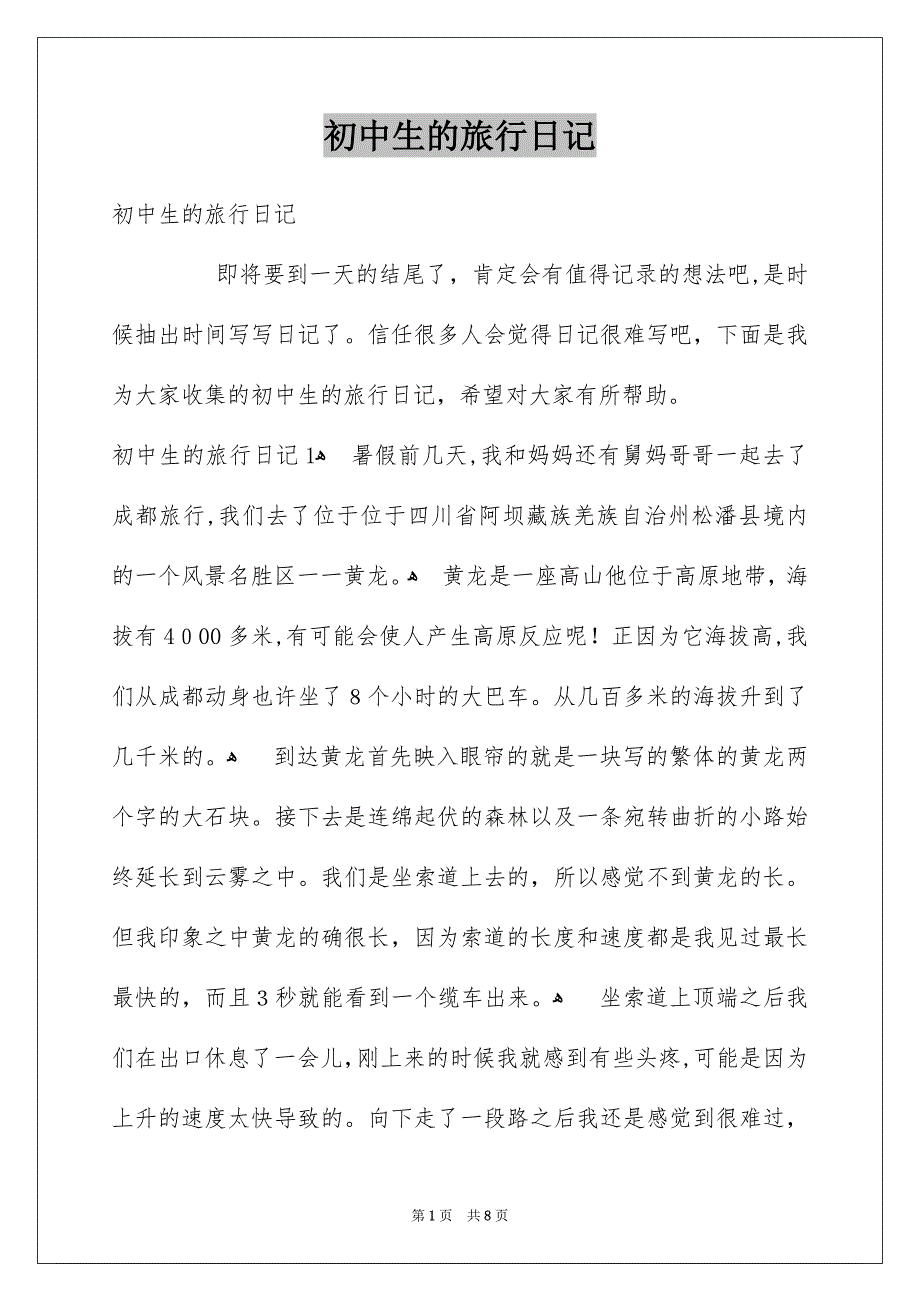 初中生的旅行日记
初中生的旅行日记
即将要到一天的结尾了，肯定会有值得记录的想法吧,是时
候抽出时间写写日记了。信任很多人会觉得日记很难写吧，下面是我
为大家收集的初中生的旅行日记，希望对大家有所帮助。
初中生的旅行日记1ﻫ 暑假前几天,我和妈妈还有舅妈哥哥一起去了
成都旅行,我们去了位于位于四川省阿坝藏族羌族自治州松潘县境内
的一个风景名胜区一一黄龙。ﻫ 黄龙是一座高山他位于高原地带，海
拔有4000多米,有可能会使人产生高原反应呢！正因为它海拔高,我
们从成都动身也许坐了8个小时的大巴车。从几百多米的海拔升到了
几千米的。ﻫ 到达黄龙首先映入眼帘的就是一块写的繁体的黄龙两
个字的大石块。接下去是连绵起伏的森林以及一条宛转曲折的小路始
终延长到云雾之中。我们是坐索道上去的，所以感觉不到黄龙的长。
但我印象之中黄龙的确很长，因为索道的长度和速度都是我见过最长
最快的，而且3秒就能看到一个缆车出来。ﻫ 坐索道上顶端之后我
们在出口休息了一会儿,刚上来的时候我就感到有些头疼,可能是因为
上升的速度太快导致的。向下走了一段路之后我还是感觉到很难过，
第1页 共8页